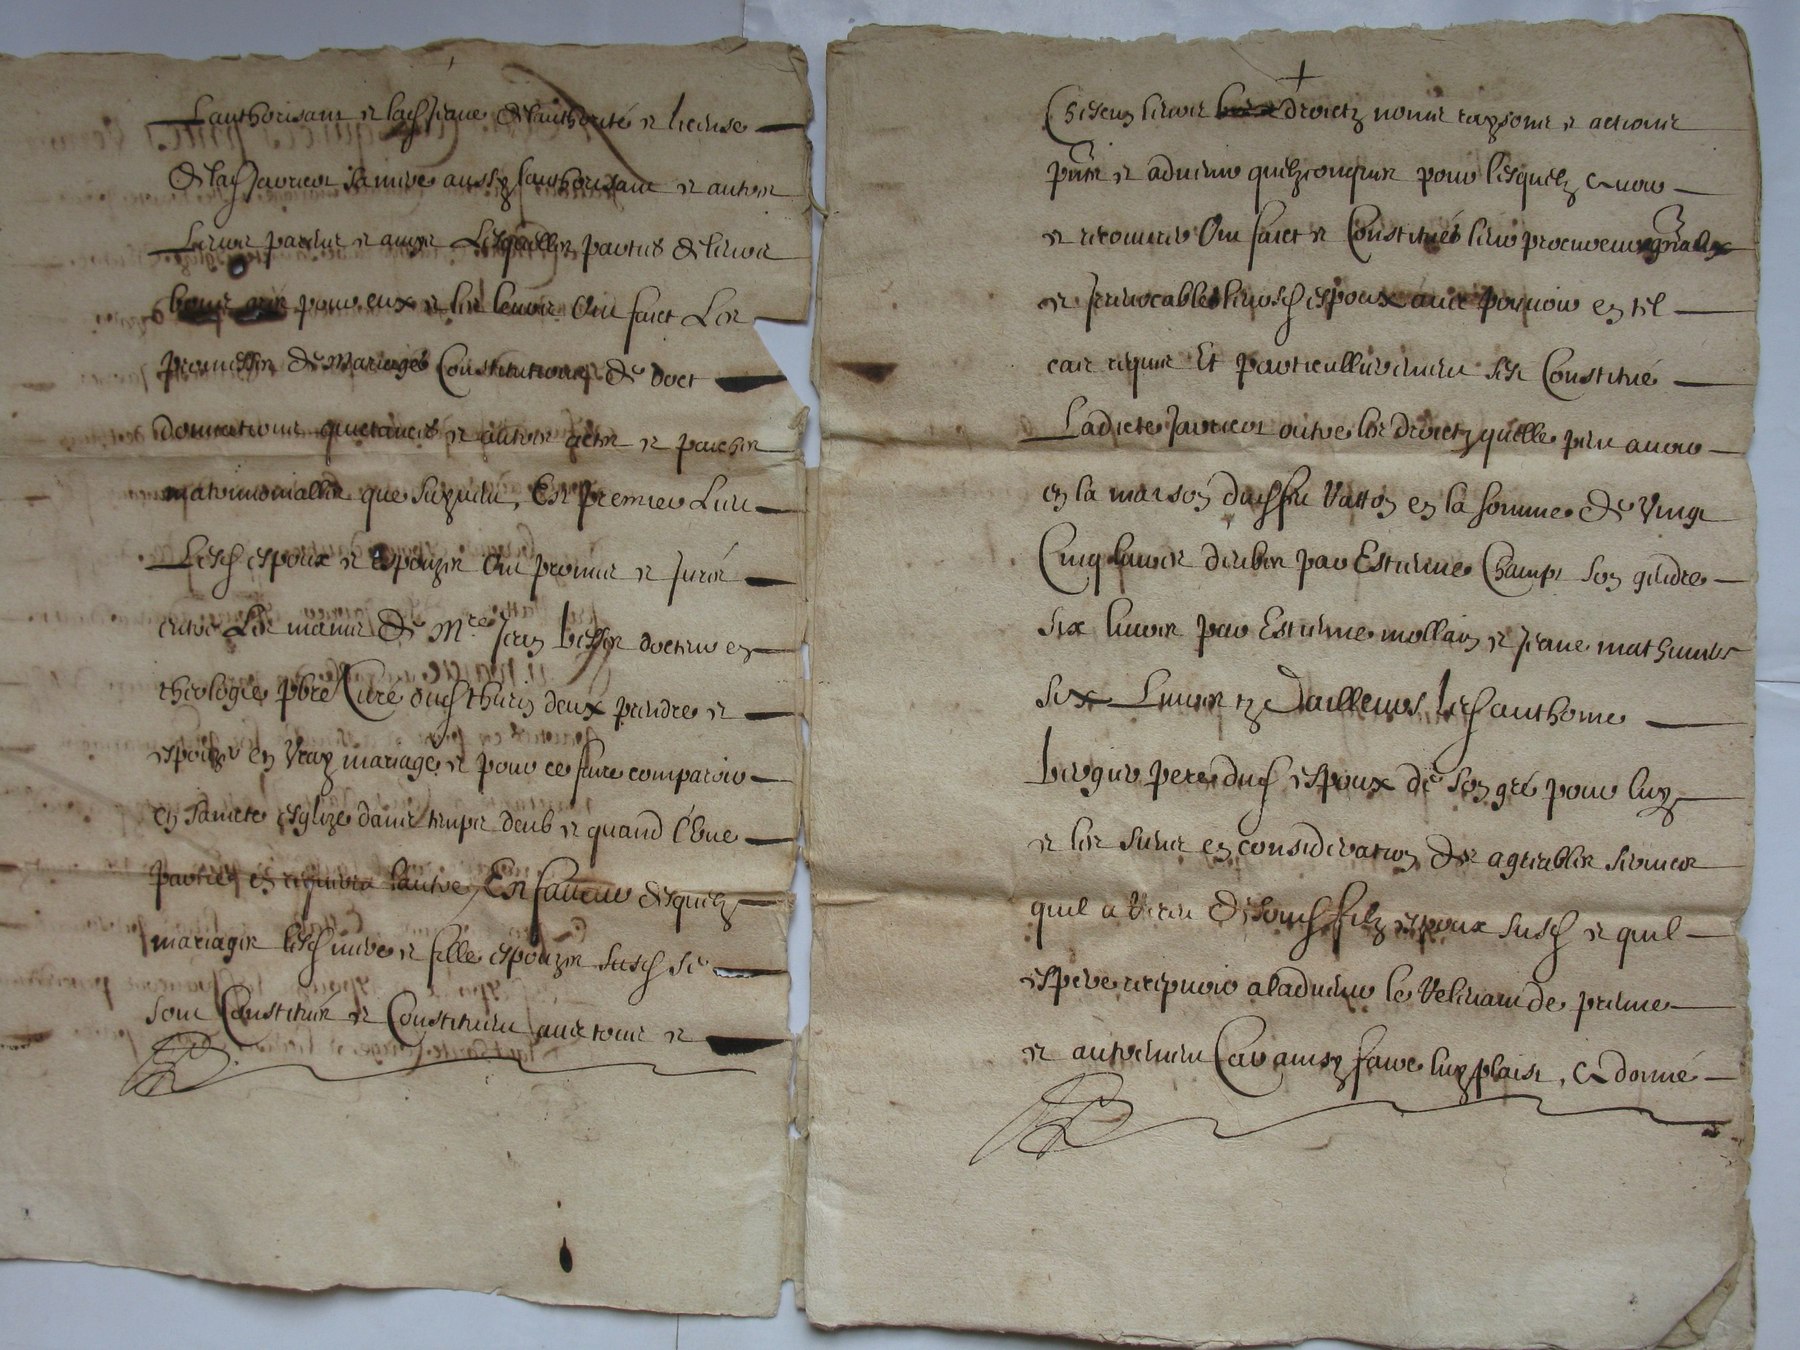 Lauthorisant et lad Jeane de lauthorité et license
de lad Javricor sa mere aussy lauthorisant et autres
Leurs parens et amys Lesquelles parties de leurs
pour eux et les leurs Ont faict Les
promesses de Mariages Constitutions de doct
donnations quictances et autres actes et paches
matrimoniallez que suyvent, Et Premierement
Lesd espoux et espouzes Ont promis et juré
entre Les mains de Mre Jean docteur en
theologie pbre Curé dud thurin deux prendre et
espouzer en Vray mariage et pour ce faire comparoir
en saincte esglize dans temps deub et quand lune
partie en requerra lautre, Et en faveur desquelz
mariages lesd mere et fille espouzes susd se
sont Constitués et Constituent avec tous et
Chescuns leurs droictz noms raysons et actions
pnts et advenir quelzconques pour lesquelz avoir
et recouvrer Ont faict et Constitués leurs procureurs gnaulx
et Irrevocables leursd espoux avec pouvoir en tel
cas requis Et particullierement sest Constitué
Ladicte Javricor outre les droictz quelle peut avoir
en la maison dud feu Vatton en la somme de Vingt
Cinq livres deubes par Estienne Champt son gendre
six livres par Estienne mollain et Jeane mathunier
six Livres Et Dailleurs led anthoine
pere dud espoux de son gré pour luy
et les siens en consideration des agreables services
quil a receu de soud filz espoux susd et quil
espere recepvoir a ladvenir le Vellieant de prime
et autrement Car ainsy faire luy plaist, a donné